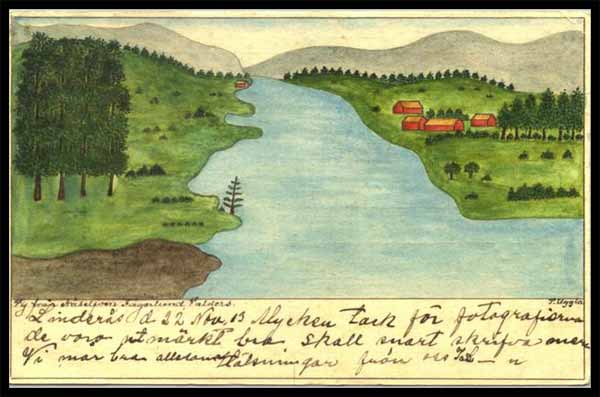 Vy från Fagerlund Valders. T. Uggla
Linderås d 22 Nov. 13 Mycken tack för fotografierna
de voro utmärkt bra Skall snart skrifva mer
Vi mår bra allesam Hälsningar från oss